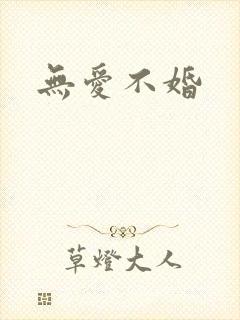 無愛不婚
草燈大人